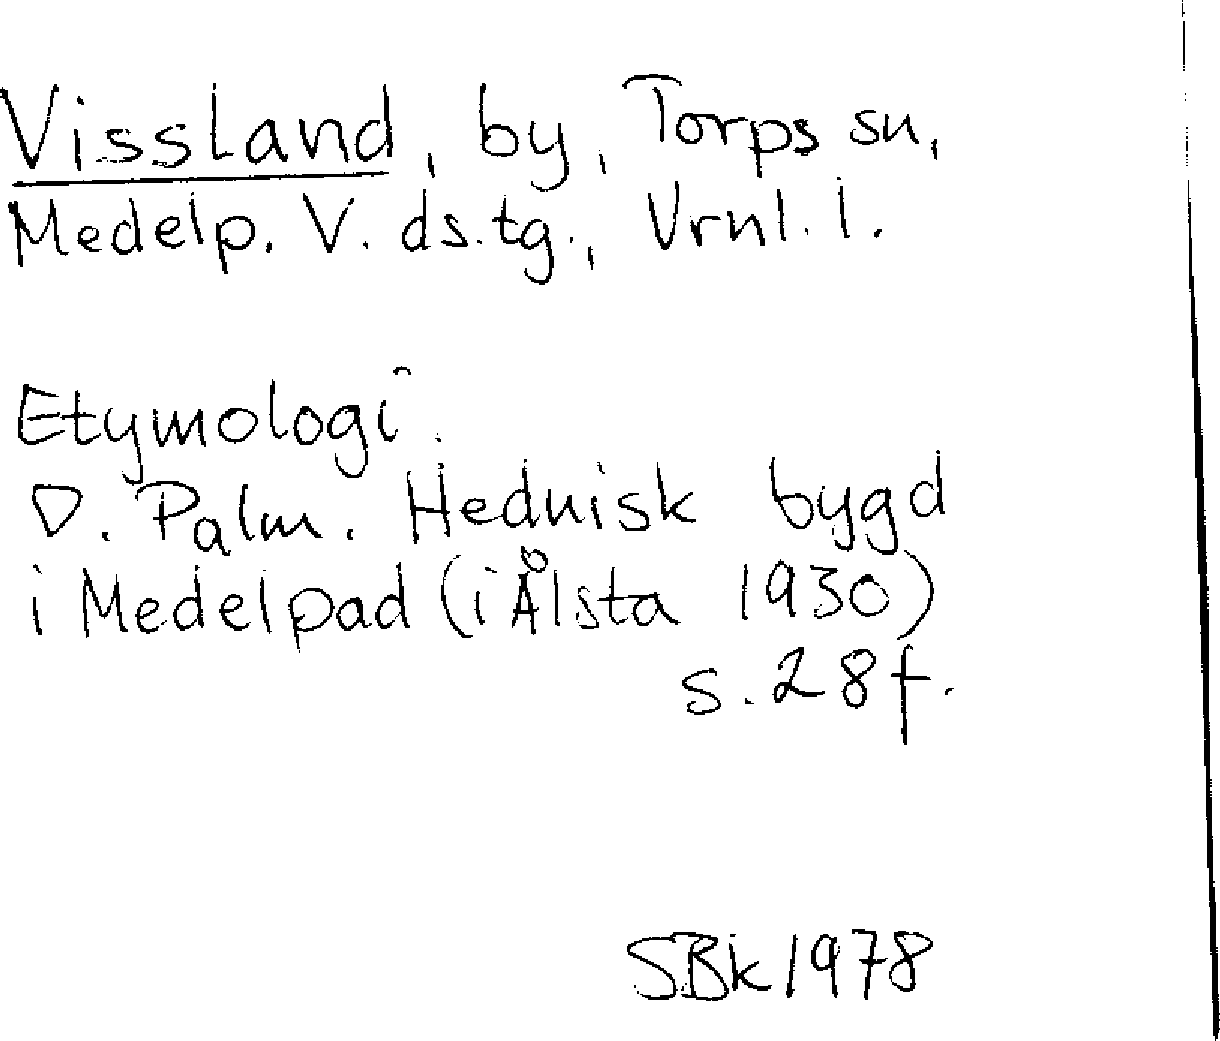 Vissland, by, Torps sn,
Medelp. V. ds.tg., Vrnl. l.
Etymologi.
D. Palm. Hednisk bygd
i Medelpad (i Ålsta 1930)
s. 28 f.
SBk 1978